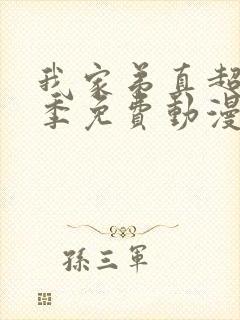 我家弟真超
季免費動漫
孫三軍